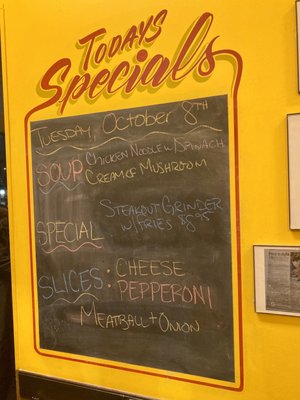 Todays
Specials
Tuesday, October 8TH
SOUP Chicken Noodle w Spinach
Cream of Mushroom
SPECIAL
Steakout Grinder
w/ Fries $8.95
SLICES: CHEESE
PEPPERONI
Meatball + Onion